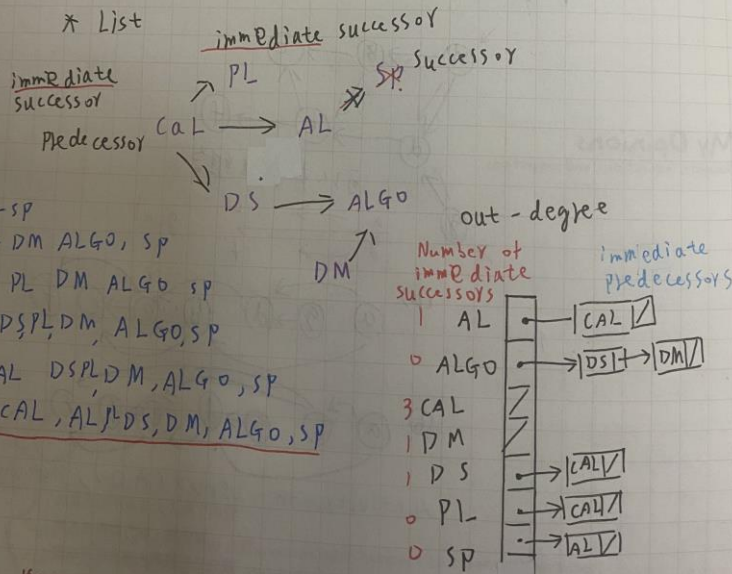 * List
immediate successor
immediate
successor
PL
SP successor
Predecessor CaL → AL
DS → ALGO
DM
-SP
DM ALGO, SP
PL DM ALGO SP
DS,PL,DM, ALGO,SP
AL DSPL,DM,ALGO,SP
CAL, AL,PL DS, DM, ALGO, SP
out-degree
Number of
immediate
successors
immediate
predecessors
1 AL CAL
0 ALGO → DS → DM
3 CAL
1 DM
1 DS → CAL
0 PL → CAL
0 SP → AL